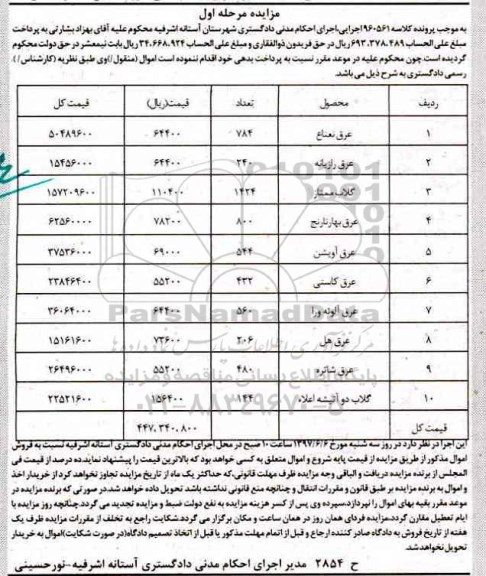 مزایده مرحله اول
به موجب پرونده کلاسه ۹۶۰۵۶۱ اجرایی،اجرای احکام مدنی دادگستری شهرستان آستانه اشرفیه محکوم علیه آقای بهزاد بشارتی به پرداخت
مبلغ علی الحساب ۶۹۳،۳۷۸،۴۸۹ ریال در حق فریدون ذوالفقاری و مبلغ علی الحساب ۳۴،۶۶۸،۹۲۴ ریال بابت نیمعشر در حق دولت محکوم
گردیده است.چون محکوم علیه در موعد مقرر نسبت به پرداخت بدهی خود اقدام ننموده است اموال (منقول/)وی طبق نظریه (کارشناس/)
رسمی دادگستری به شرح ذیل می باشد.
ردیف محصول تعداد قیمت(ریال) قیمت کل
۱ عرق نعناع ۷۸۴ ۶۴۴۰۰ ۵۰۴۸۹۶۰۰
۲ عرق رازیانه ۲۴۰ ۶۴۴۰۰ ۱۵۴۵۶۰۰۰
۳ گلاب ممتاز ۱۴۲۴ ۱۱۰۴۰۰ ۱۵۷۲۰۹۶۰۰
۴ عرق بهارنارنج ۸۰۰ ۷۸۲۰۰ ۶۲۵۶۰۰۰۰
۵ عرق آویشن ۵۴۴ ۶۹۰۰۰ ۳۷۵۳۶۰۰۰
۶ عرق کاسنی ۴۳۲ ۵۵۲۰۰ ۲۳۸۴۶۴۰۰
۷ عرق آلوئه ورا ۵۶۰ ۶۴۴۰۰ ۳۶۰۶۴۰۰۰
۸ عرق هل ۲۰۶ ۷۳۶۰۰ ۱۵۱۶۱۶۰۰
۹ عرق شاتره ۴۸۰ ۵۵۲۰۰ ۲۶۴۹۶۰۰۰
۱۰ گلاب دو آتیشه اعلاء ۱۴۴ ۱۵۶۴۰۰ ۲۲۵۲۱۶۰۰
قیمت کل ۴۴۷،۳۴۰،۸۰۰
این اجرا در نظر دارد در روز سه شنبه مورخ ۱۳۹۷/۶/۶ ساعت ۱۰ صبح در محل اجرای احکام مدنی دادگستری آستانه اشرفیه نسبت به فروش
اموال مذکور از طریق مزایده از قیمت پایه شروع و اموال متعلق به کسی خواهد بود که بالاترین قیمت را پیشنهاد نماید.ده درصد از قیمت فی
المجلس از برنده مزایده دریافت و الباقی وجه مزایده ظرف مهلت قانونی،که حداکثر یک ماه از تاریخ مزایده تجاوز نخواهد کرد از خریدار اخذ
و اموال به برنده مزایده بر طبق قانون و مقررات انتقال و چنانچه منع قانونی نداشته باشد تحویل داده خواهد شد.در صورتی که برنده مزایده در
موعد مقرر بقیه بهای اموال را نپردازد،سپرده وی پس از کسر هزینه مزایده به نفع دولت ضبط و مزایده تجدید می گردد.چنانچه روز مزایده با
ایام تعطیل مقارن گردد،مزایده فردای همان روز در همان ساعت و مکان برگزار می گردد.شکایت راجع به تخلف از مقررات مزایده ظرف یک
هفته از تاریخ فروش به دادگاه صادر کننده ارجاع و قبل از اتمام مهلت مذکور یا قبل از اتخاذ تصمیم دادگاه(در صورت شکایت)اموال به خریدار
تحویل نخواهد شد.
ح ۲۸۵۴ مدیر اجرای احکام مدنی دادگستری آستانه اشرفیه-نورحسینی
ParsNamadData
پایگاه اطلاع رسانی مناقصه و مزایده
۰۲۱-۸۸۳۴۹۶۷۰-۵